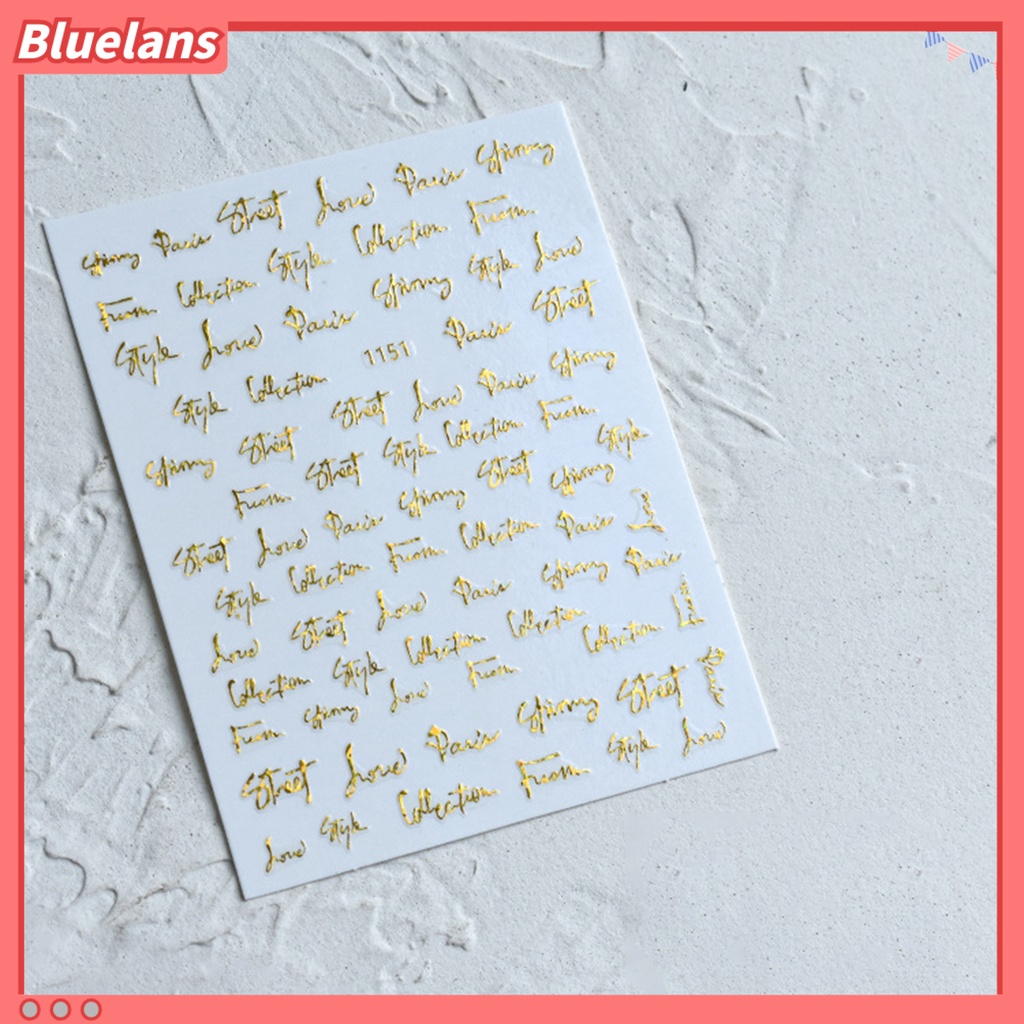 Bluelans
Paris Street Love Paris
From Collection Style Collection From
Style Love Paris Style Love
Style Collection 1151 Paris Street
Street Street Love Paris
From Street Style Collection From Style
Street Love Paris Street
Style Collection From Collection Paris Love
Love Street Love Paris Paris
Collection Style Collection Collection Collection Love
From Love From Paris
Street Love Paris Street
Love Style Collection From Style Love